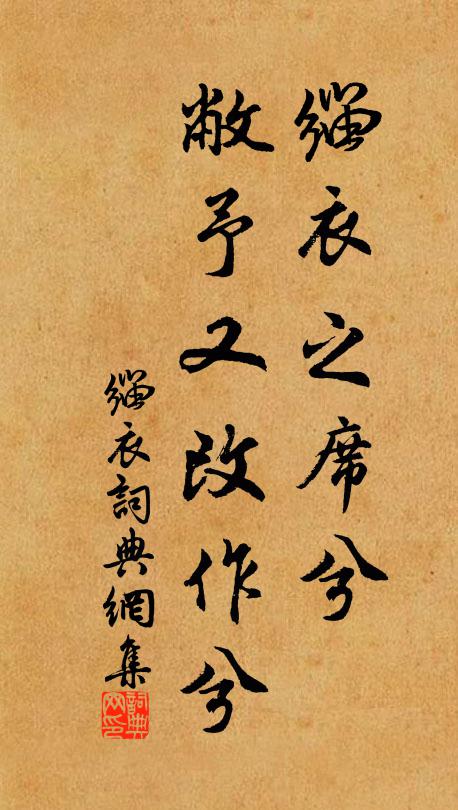 緇衣之席兮
敝予又改作兮
緇衣詞典網集
詞典
网印